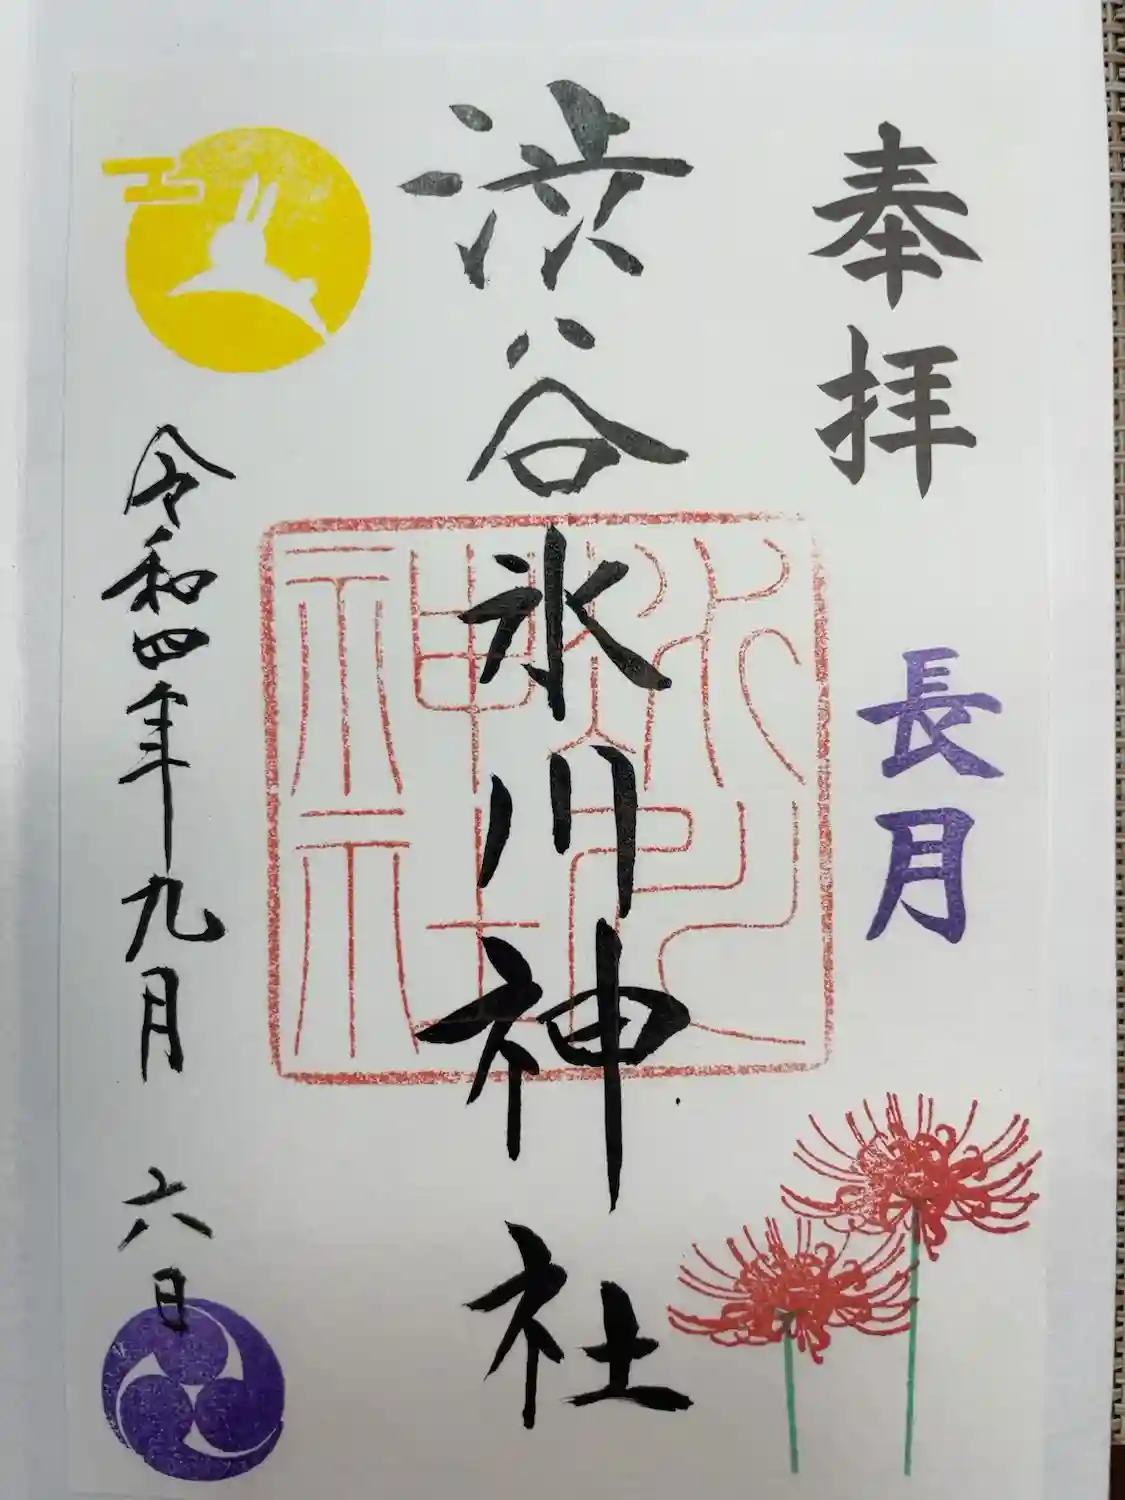 奉拝
長月
渋谷氷川神社
氷川神社
令和四年九月六日